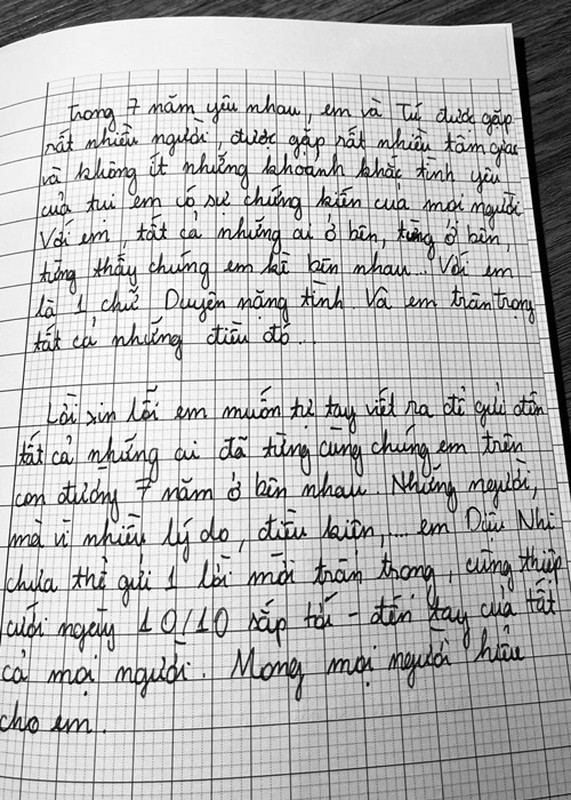 Trong 7 năm yêu nhau, em và Tú được gặp
rất nhiều người, được gặp rất nhiều tấm gương
và không ít những khoảnh khắc tình yêu
của tụi em có sự chứng kiến của mọi người
Với em, tất cả những ai ở bên, từng ở bên,
từng thấy chúng em kề bên nhau... Với em
là 1 chữ Duyên nặng tình. Và em trân trọng
tất cả những điều đó...
Lời xin lỗi em muốn tự tay viết ra để gửi đến
tất cả những ai đã từng cùng chúng em trên
con đường 7 năm ở bên nhau. Những người,
mà vì nhiều lý do, điều kiện,... em Diệu Nhi
chưa thể gửi 1 lời mời trân trọng, cùng thiệp
cưới ngày 10/10 sắp tới - đến tay của tất
cả mọi người. Mong mọi người hiểu
cho em.